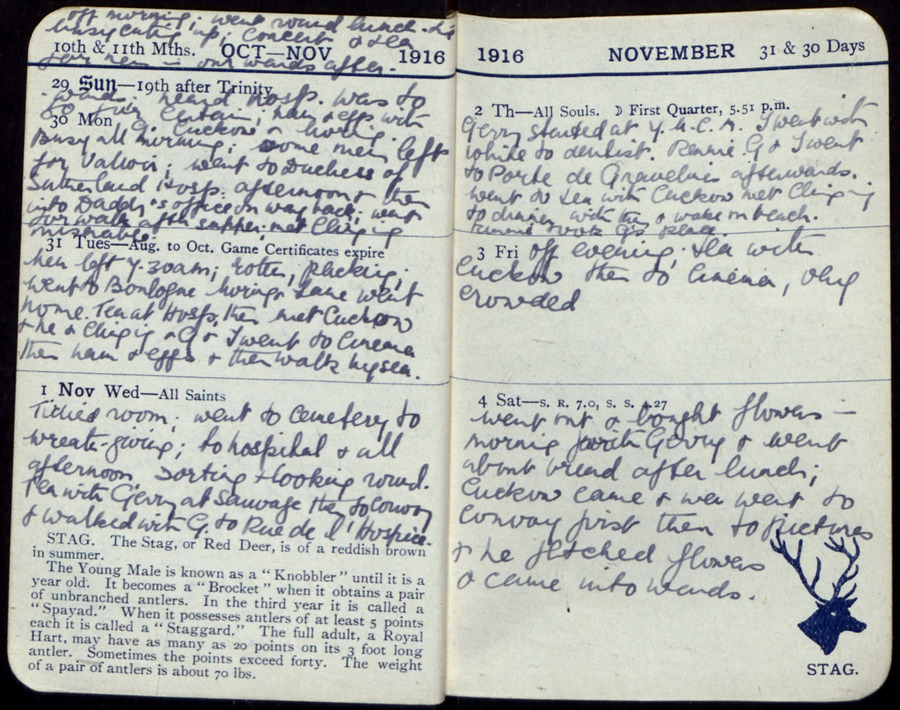 off morning; went round lunch the
busy cutting up; concert & tea
10th & 11th Mths. OCT—NOV 1916
for men in our wards after.
29 Sun—19th after Trinity
wards. heard hosp. was to
go for certain; ham & eggs with
30 Mon G. Cuckow &
Busy all morning; some men left
for Vallon; went to Duchess of
Sutherland Hosp. afternoon & then
into Daddy's office on way back; went
for walk after supper; met Clinging
miserable.
31 Tues—Aug. to Oct. Game Certificates expire
Men left 7.30am; rotten, packing;
went to Boulogne Lane went
home. Tea at Hosp. then met Cuckow
& he & Clinging & G & I went to Cinema
then ham & eggs & then walk by sea.
1 Nov Wed—All Saints
Tidied room; went to Cemetery to
wreath-giving; to hospital & all
afternoon, sorting & looking round.
Tea with Gerry at Sauvage then to Convoy
& walked with G. to Rue de l'Hospice.
STAG. The Stag, or Red Deer, is of a reddish brown
in summer.
The Young Male is known as a "Knobbler" until it is a
year old. It becomes a "Brocket" when it obtains a pair
of unbranched antlers. In the third year it is called a
"Spayad." When it possesses antlers of at least 5 points
each it is called a "Staggard." The full adult, a Royal
Hart, may have as many as 20 points on its 3 foot long
antler. Sometimes the points exceed forty. The weight
of a pair of antlers is about 70 lbs.
1916 NOVEMBER 31 & 30 Days
2 Th—All Souls. ☽ First Quarter, 5.51 p.m.
Gerry started at Y.M.C.A. I went with
White to dentist. Rennie G & I went
to Porte de Gravelines afterwards.
went to tea with Cuckow met Clinging
to dinner with & walk on beach.
Rennie took G's place.
3 Fri off evening; tea with
Cuckow then to Cinema, very
crowded
4 Sat—S. R. 7.0, S. S. 4.27
went out & bought flowers —
morning with Gerry & went
about bread after lunch;
Cuckow came & we went to
Convoy first then to Pictures
& he fetched flowers
& came into wards.
STAG.